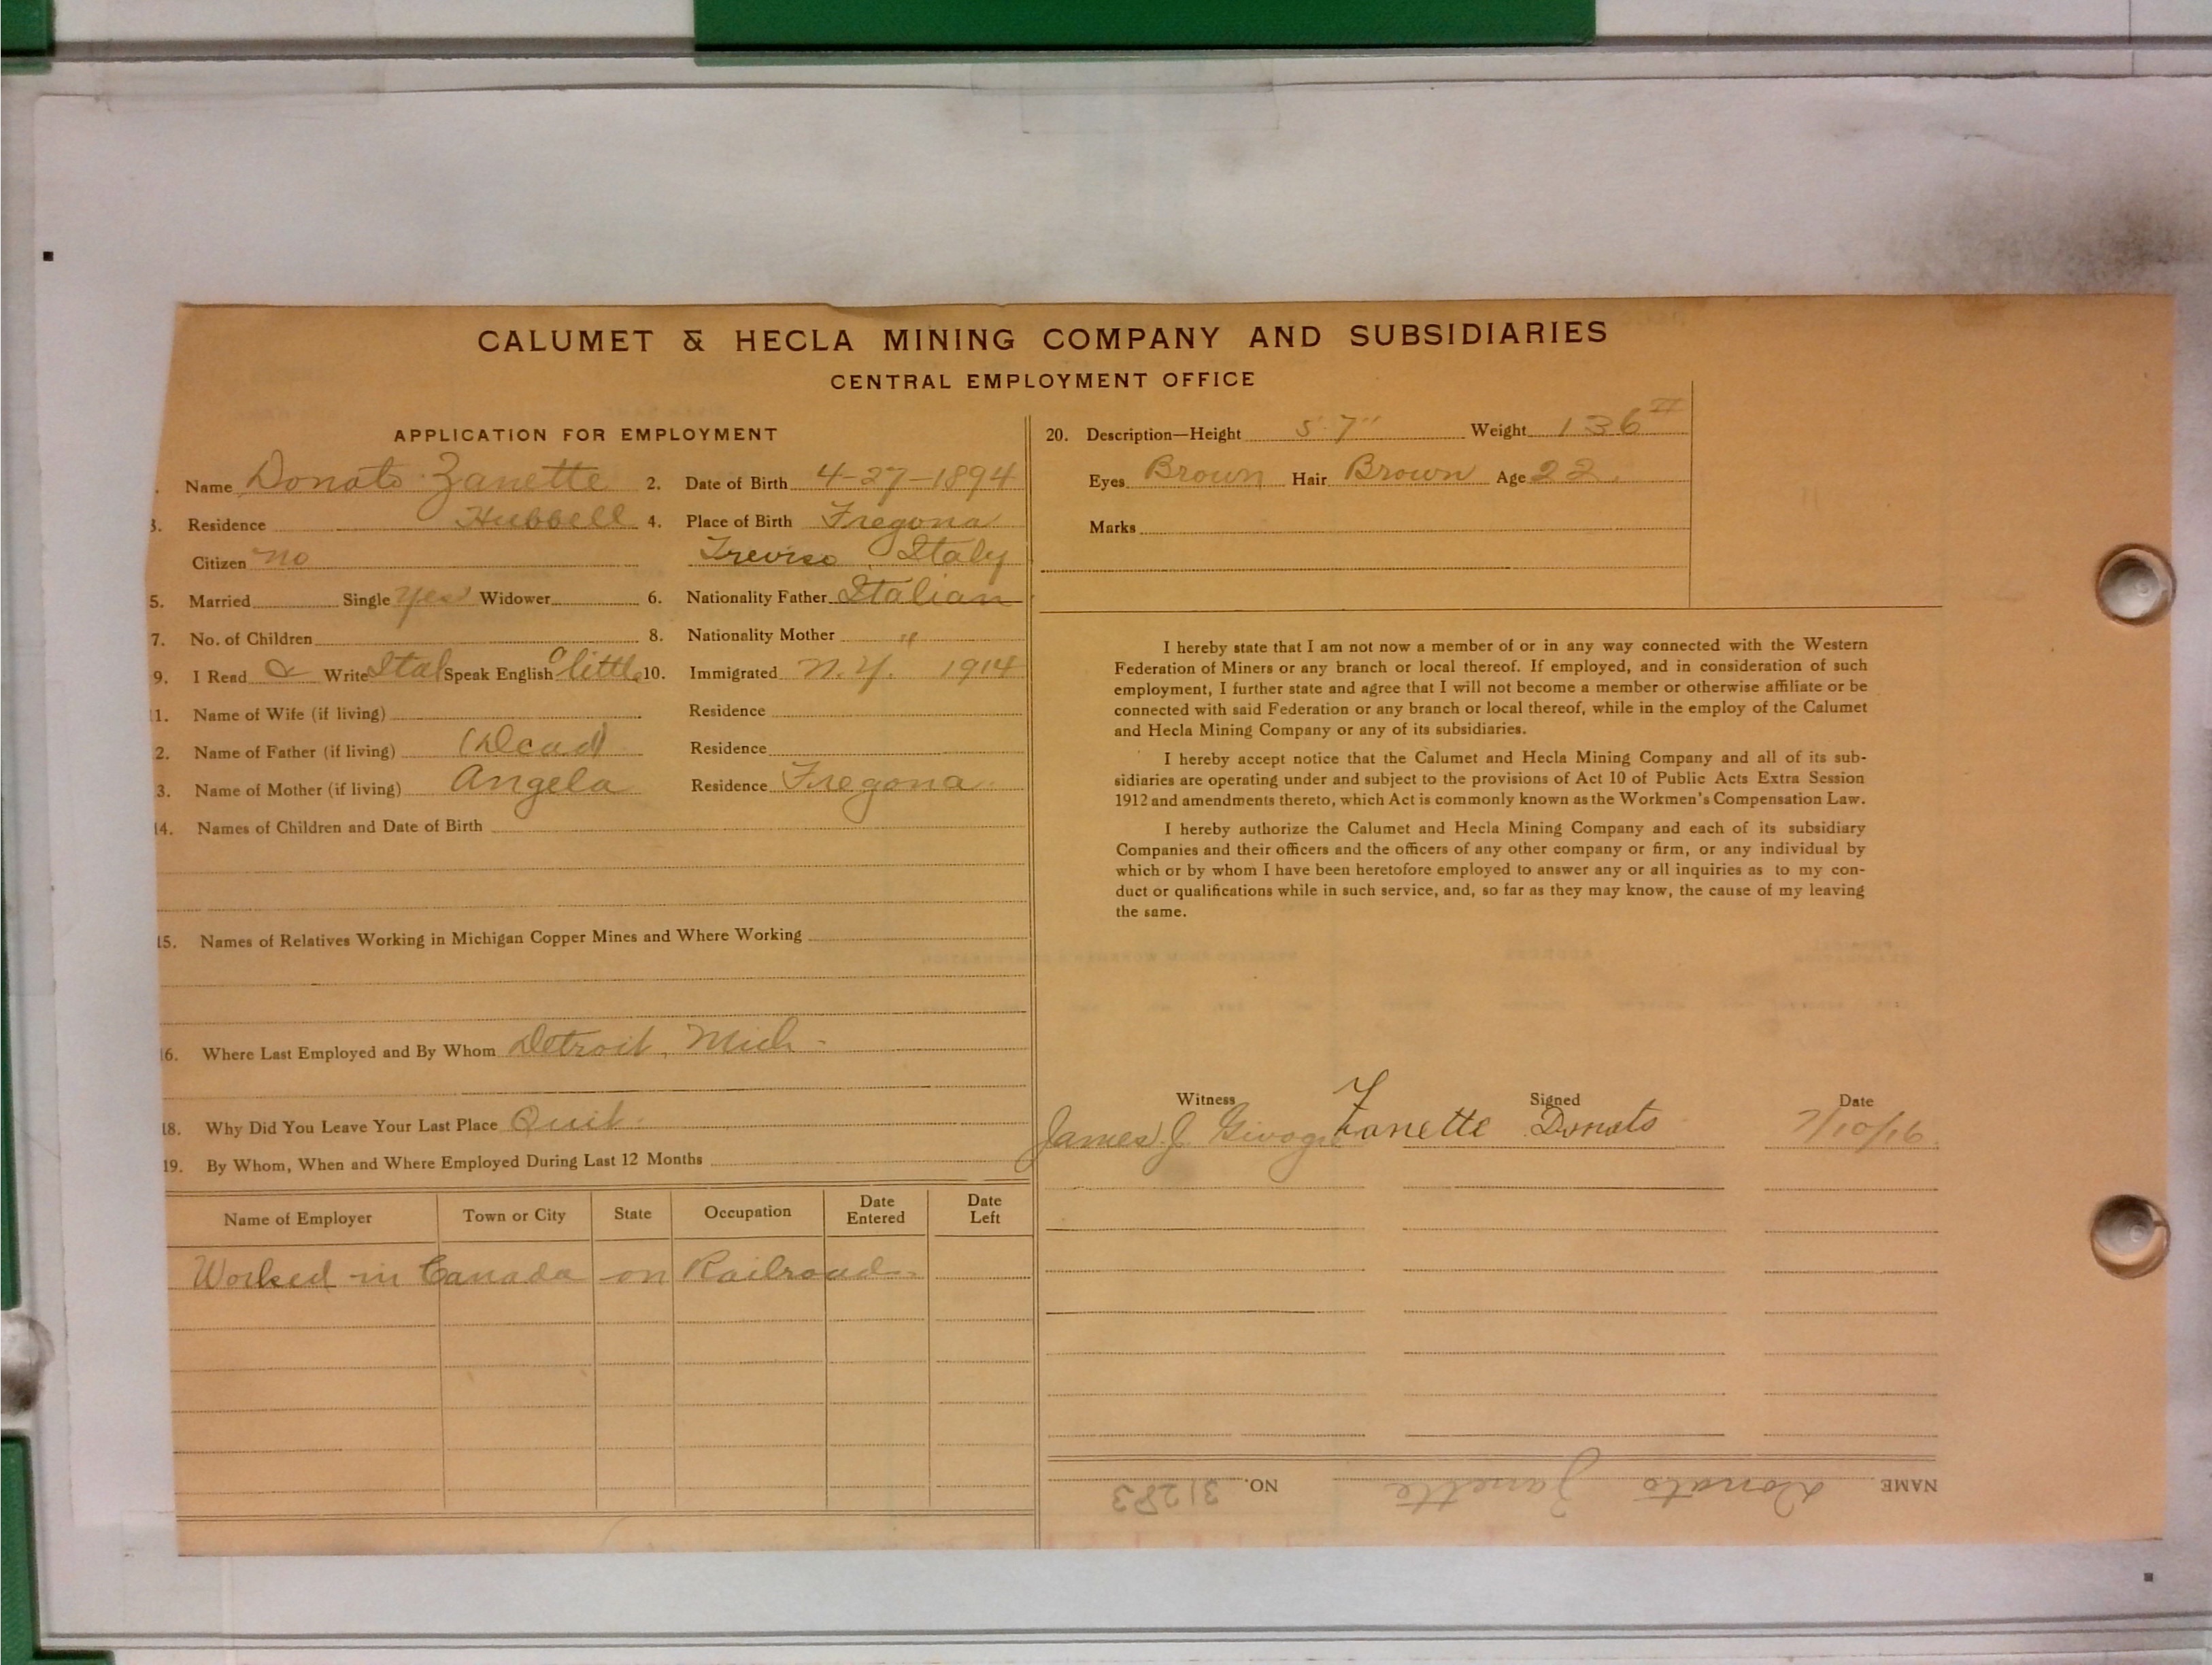 CALUMET & HECLA MINING COMPANY AND SUBSIDIARIES
CENTRAL EMPLOYMENT OFFICE
APPLICATION FOR EMPLOYMENT
. Name Donato Zanette 2. Date of Birth 4-27-1894
3. Residence Hubbell 4. Place of Birth Fregona
Citizen no Treviso, Italy
5. Married Single yes Widower 6. Nationality Father Italian
7. No. of Children 8. Nationality Mother "
9. I Read & Write Ital Speak English a little 10. Immigrated N.Y. 1914
11. Name of Wife (if living) Residence
2. Name of Father (if living) (Dead) Residence
3. Name of Mother (if living) Angela Residence Fregona
14. Names of Children and Date of Birth
15. Names of Relatives Working in Michigan Copper Mines and Where Working
16. Where Last Employed and By Whom Detroit, Mich-
18. Why Did You Leave Your Last Place Quit-
19. By Whom, When and Where Employed During Last 12 Months
Name of Employer Town or City State Occupation Date Entered Date Left
Worked in Canada on Railroad-
20. Description—Height 5' 7" Weight 136
Eyes Brown Hair Brown Age 22.
Marks
I hereby state that I am not now a member of or in any way connected with the Western
Federation of Miners or any branch or local thereof. If employed, and in consideration of such
employment, I further state and agree that I will not become a member or otherwise affiliate or be
connected with said Federation or any branch or local thereof, while in the employ of the Calumet
and Hecla Mining Company or any of its subsidiaries.
I hereby accept notice that the Calumet and Hecla Mining Company and all of its sub-
sidiaries are operating under and subject to the provisions of Act 10 of Public Acts Extra Session
1912 and amendments thereto, which Act is commonly known as the Workmen's Compensation Law.
I hereby authorize the Calumet and Hecla Mining Company and each of its subsidiary
Companies and their officers and the officers of any other company or firm, or any individual by
which or by whom I have been heretofore employed to answer any or all inquiries as to my con-
duct or qualifications while in such service, and, so far as they may know, the cause of my leaving
the same.
Witness Signed Date
James J. Zanette Donato 7/10/16
NAME Donato Zanette NO. 31283